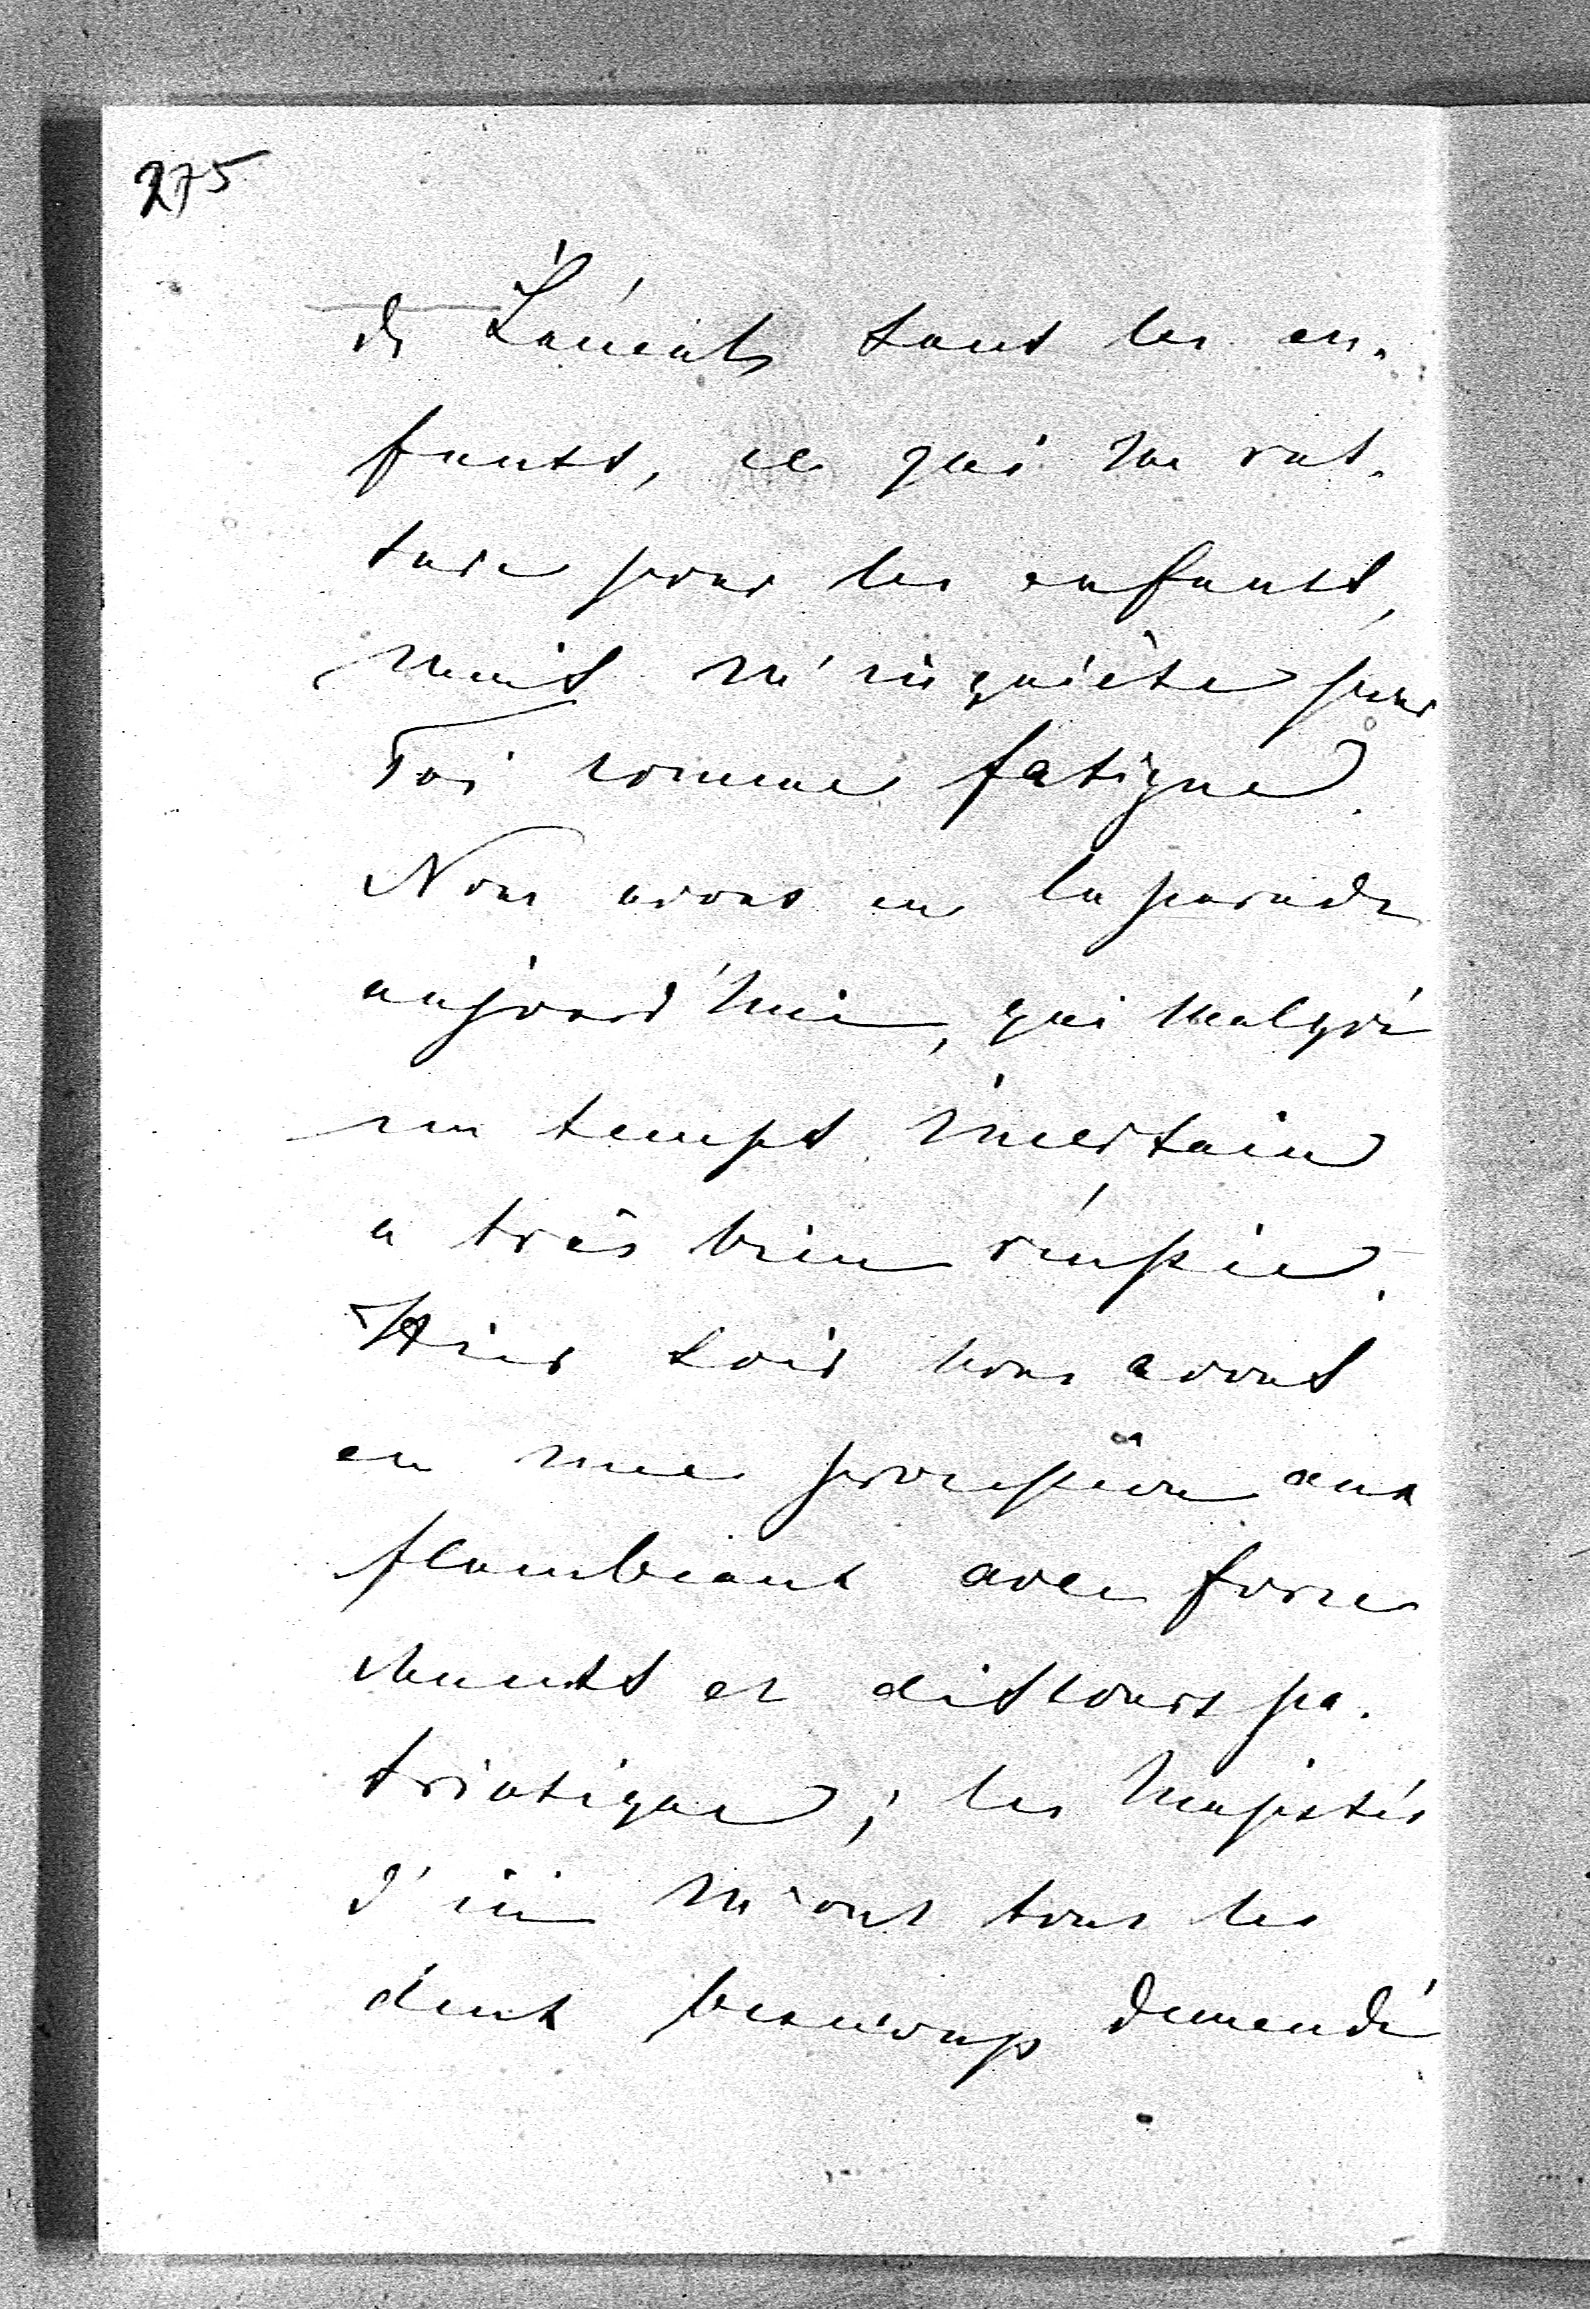 275
de Zanients sans les en-
fants, ce qui me ras-
sure pour les enfants,
mais m'inquiète pour
Toi comme fatigue.
Nous avons eu la parade
aujourd'hui, qui malgré
un temps incertain
a très bien réussie.
Hier soir nous avons
eu une procession aux
flambeaux avec force
chants et discours pa-
triotique; les Majestés
d'ici m'ont tous les
deux beaucoup demandé